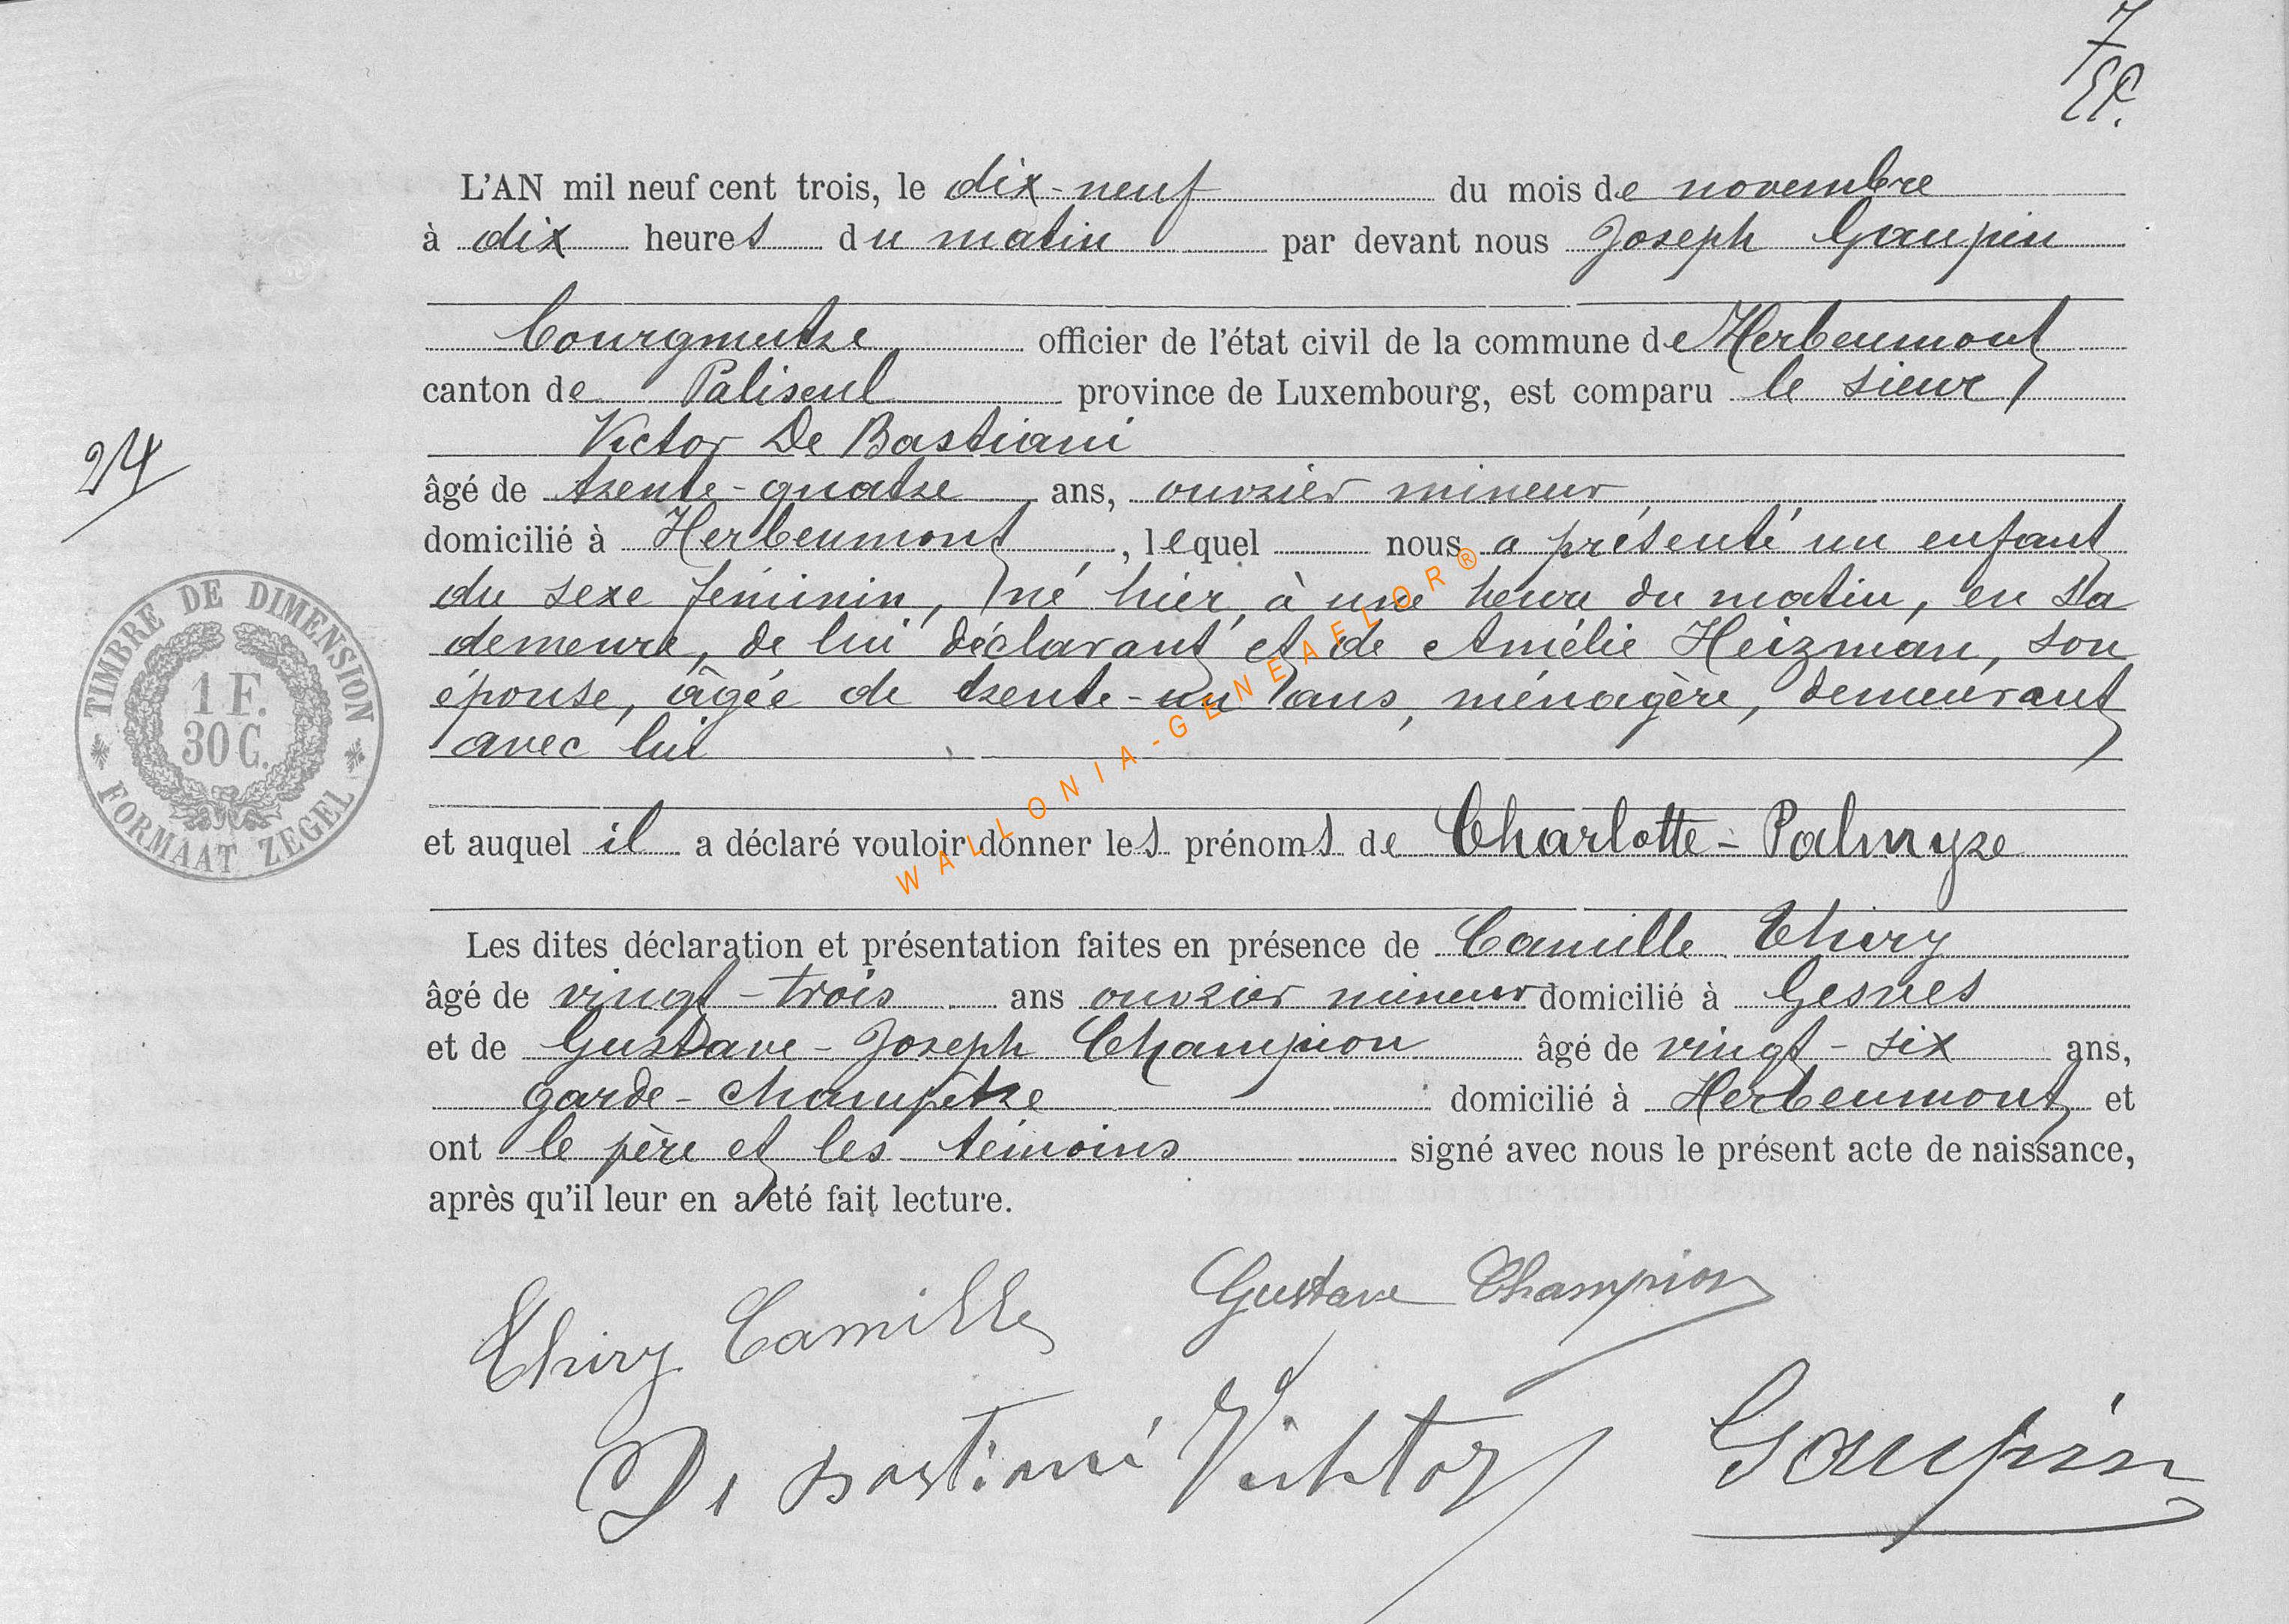 7
L'AN mil neuf cent trois, le dix-neuf du mois de novembre
à dix heures du matin par devant nous Joseph Gaupin
Bourgmestre officier de l'état civil de la commune de Herbeumont
canton de Paliseul province de Luxembourg, est comparu le sieur
Victor De Bastiani
24
âgé de trente-quatre ans, ouvrier mineur,
domicilié à Herbeumont, lequel nous a présenté un enfant
du sexe féminin, né hier, à une heure du matin, en sa
demeure, de lui déclarant et de Amélie Heizman, son
épouse, âgée de trente-un ans, ménagère, demeurant
avec lui
TIMBRE DE DIMENSION
1 F.
30 C.
FORMAAT ZEGEL
WALLONIA-GENEAELOR®
et auquel il a déclaré vouloir donner les prénoms de Charlotte-Palmyre
Les dites déclaration et présentation faites en présence de Camille Thiry
âgé de vingt-trois ans ouvrier mineur domicilié à Gesves
et de Gustave-Joseph Champion âgé de vingt-six ans,
garde-champêtre domicilié à Herbeumont et
ont le père et les témoins signé avec nous le présent acte de naissance,
après qu'il leur en a été fait lecture.
Thiry Camille Gustave Champion
De Bastiani Vicktor Gaupin